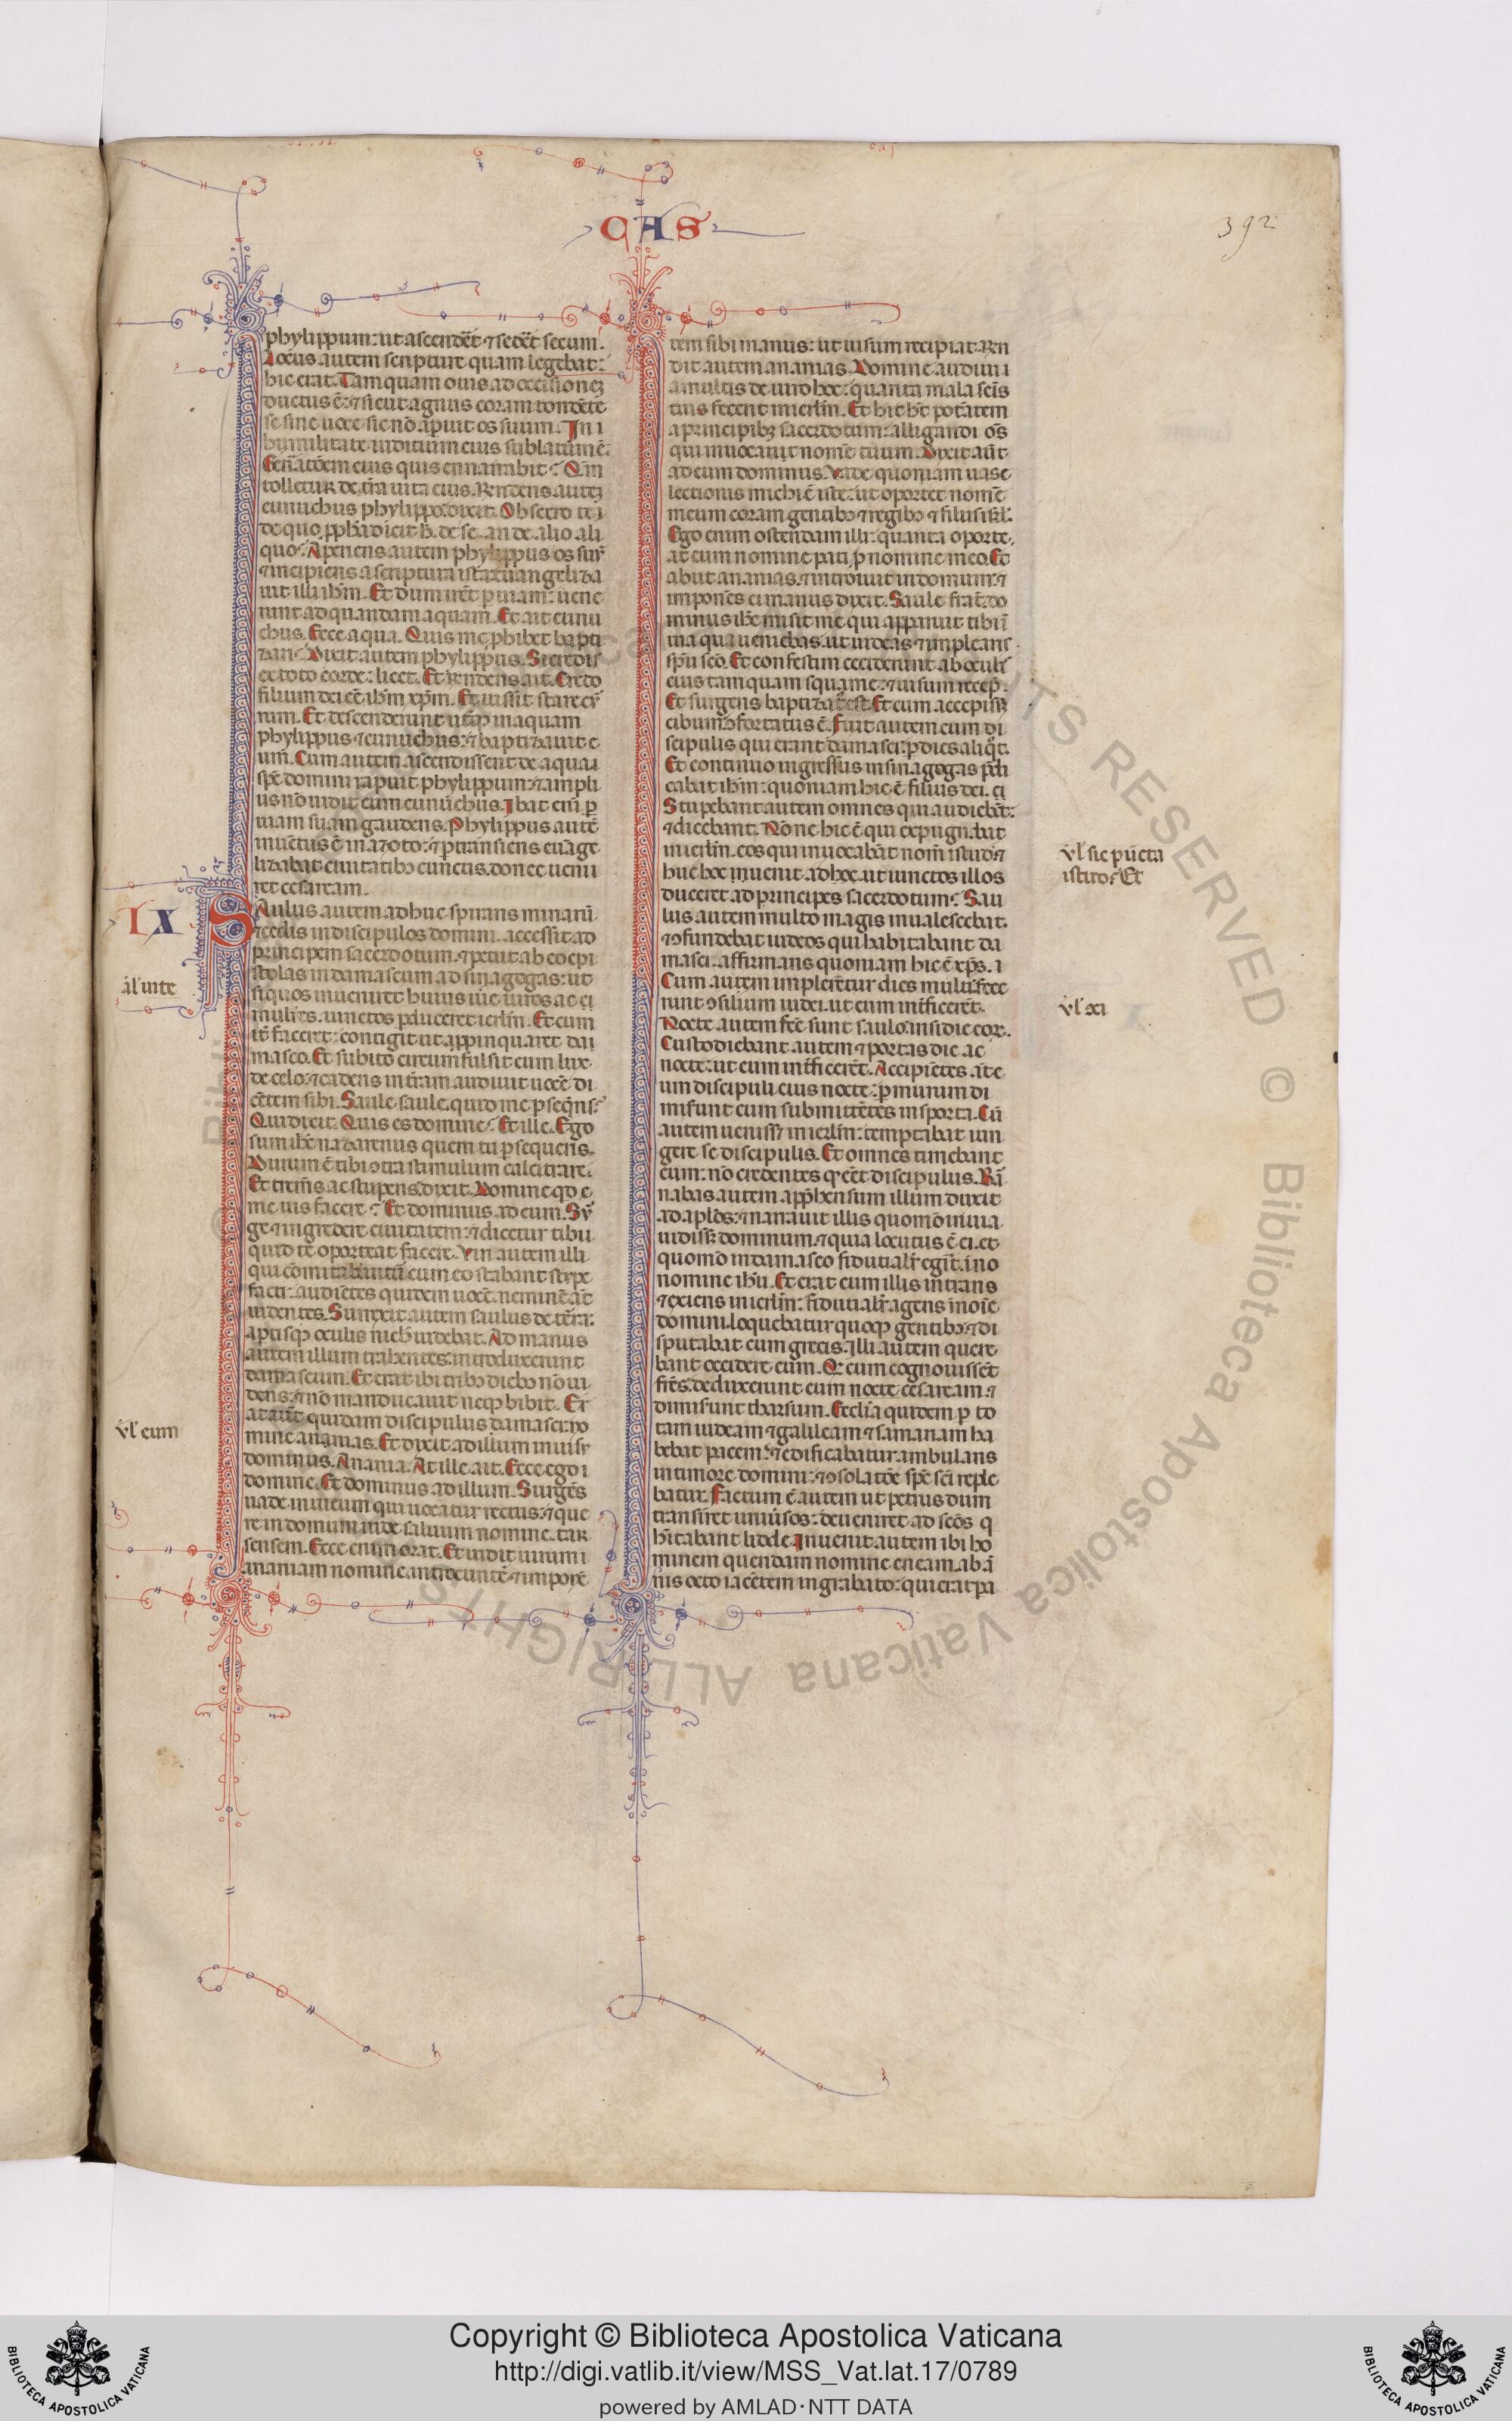 CAS
392
phylippum: ut ascendẽt ⁊ sedẽt secum.
Locus autem scripture quam legebat:
hic erat. Tamquam ouis ad occisionẽ
ductus ẽ: ⁊ sicut agnus coram tondẽte
se sine uoce sic nõ apuit os suum. In i
humilitate iuditium eius sublatum ẽ.
Genatõem eius quis ennarrabit? Qm̃
tolletur de tr̃a uita eius. Rñdens autẽ
eunuchus phylippo dixit. Obsecro te i
de quo ppha dicit h̃. de se. an de alio ali
quo? Aperiens autem phylippus os suũ
⁊ incipiens a scriptura ista: euangeliza
uit illi ihm̃. Et dum irẽt p uiam: uene
runt ad quandam aquam. Et ait eunu
chus. Ecce aqua. Quis me phibet bapti
zari? Dixit autem phylippus. Si credis
ex toto corde: licet. Et rñdens ait. Credo
filium dei eẽ ihm̃ xp̃m. Et iussit stare cur
rum. Et descenderunt utq in aquam
phylippus ⁊ eunuchus: ⁊ baptizauit e
um. Cum autem ascendissent de aqua i
sp̃c domini rapuit phylippum: ⁊ ampli
us nõ uidit eum eunuchus. Ibat eni p
uiam suam gaudens. Phylippus autẽ
inuẽtus ẽ in azoto: ⁊ ptransiens euãge
lizabat ciuitatibȝ cunctis. donec ueni
ret cesaream.
IX
SAulus autem adhuc spirans minarũ
⁊ cedis in discipulos domini. accessit ad
principem sacerdotum. ⁊ petiit ab eo epi
stolas in damascum ad sinagogas: ut
al' uite
si quos inueniret huius uie uiros ac ci
mulieres. uinctos pduceret ierl̃m. Et cum
it̃ faceret: contigit ut appinquaret da i
masco. Et subito circumfulsit eum lux
de celo: ⁊ cadens in tr̃am audiuit uocẽ di
cẽtem sibi. Saule saule. quid me pseq̃ris?
Qui dixit. Quis es domine? Et ille. Ego
sum ihc̃ nazarenus quem tu psequeris.
Durum ẽ tibi ɔtra stimulum calcitrare.
Et trem̃s ac stupens. dixit. Domine qd e
me uis facere? Et dominus ad eum. Sur
ge ⁊ ingredere ciuitatem: ⁊ dicetur tibi i
quid te oporteat facere. Viri autem illi
qui comitabantũ cum eo stabant stupe
facti: audiẽtes quidem uocẽ. neminẽ aũt
uidentes. Surrexit autem saulus de tẽrra:
aptisqȝ oculis nich' uidebat. Ad manus
autem illum trahentes: introduxerunt
damascum. Et erat ibi tribȝ diebȝ nõ ui
dens: ⁊ nõ manducauit neqȝ bibit. Er
ul' eum
at aut̃ quidam discipulus damasci: no
mine ananias. Et dixit ad illum in uisu
dominus. Anania. At ille ait. Ecce ego i
domine. Et dominus ad illum. Surgẽs
uade in uicum qui uocatur rectus: ⁊ que
re in domum iude saulum nomine. tar
sensem. Ecce enim orat. Et uidit uirum i
ananiam nomine. introeuntẽ ⁊ imponẽ
tem sibi manus: ut uisum recipiat. Rñ
dit autem ananias. Domine audiui i
a multis de uiro hoc: quanta mala scis
tuis fecerit in ierl̃m. Et hic ht̃ potãtem
a principibȝ sacerdotum: alligandi oẽs
qui inuocant nomẽ tuum. Dixit aut̃
ad eum dominus. Vade quoniam uas e
lectionis michi ẽ iste: ut oportet nomẽ
meum coram gentibȝ ⁊ regibȝ ⁊ filiis isrl'.
Ego enim ostendam illi: quanta oporte
at eum nomine pati p nomine meo. Et
abiit ananias. ⁊ introiuit in domum: ⁊
imponẽs ei manus dixit. Saule frat̃. do
minus ihc̃ misit me qui apparuit tibi ĩ
uia qua ueniebas. ut uideas ⁊ implearis
sp̃u sc̃o. Et confestim ceciderunt ab oculis
eius tamquam squame: ⁊ uisum recep̃.
Et surgens baptizat̃ est. Et cum accepisset
cibum ɔfortatus ẽ. Fuit autem cum di
scipulis qui erant damasci: p dies aliqt̃.
Et continuo ingressus in sinagogas p̃di
cabat ihm̃: quoniam hic ẽ filius dei. ei
Stupebant autem omnes qui audiebãt:
⁊ dicebant. Nõne hic ẽ qui expugnabat
in ierl̃m. eos qui inuocabãt nom̃ istud? ⁊
ul' sic pũcta
istud? Et
huc hoc inuenit. ad hoc. ut iunctos illos
duceret ad principes sacerdotum? Sau
lus autem multo magis inualescebat.
⁊ ɔfundebat iudeos qui habitabant da
masci: affirmans quoniam hic ẽ xp̃s. i
Cum autem implerẽtur dies multi: fece
runt ɔsilium iudei. ut eum int̃ficerẽt.
Nocte autem fc̃e sunt saulo insidie eor̃.
Custodiebant autem ⁊ portas die ac
nocte: ut eum int̃ficerẽt. Accipiẽtes at̃ e
um discipuli eius nocte: p murum di
misunt eum submittẽtes in sporta. Cũ
autem ueniss; in ierl̃m: temptabat iun
gere se discipulis. Et omnes timebant
eum: nõ credentes q eẽt discipulus. Bar
nabas autem apphensum illum duxit
ad aplõs: ⁊ narrauit illis quomõ in uia
uidiss; dominum. ⁊ quia locutus ẽ ei. et
quomõ in damasco fiducialr̃ egit̃. ĩ no
nomine ihũ. Et erat cum illis intrans
⁊ exiens in ierl̃m: fiducialr̃ agens ĩ noĩe
domini. loquebatur quoqȝ gentibȝ: ⁊ di
sputabat cum grecis. Illi autem quere
bant occidere eum. Qd cum cognouissẽt
frẽs. deduxerunt eum nocte cesaream: ⁊
dimisunt tharsum. Ecclia quidem p to
tam iudeam ⁊ galileam ⁊ samariam ha
bebat pacem: ⁊ edificabatur. ambulans
in timore domini: ⁊ ɔsolatõe sp̃c sc̃i reple
batur. Factum ẽ autem ut petrus dum
transiret uniũsos: deueniret ad sc̃os q
hitabant lidde. Inuenit autem ibi ho
minem quendam nomine eneam. ab ã
nis octo iacẽtem in grabato: qui erat pa
Copyright © Biblioteca Apostolica Vaticana
http://digi.vatlib.it/view/MSS_Vat.lat.17/0789
powered by AMLAD·NTT DATA
BIBLIOTECA APOSTOLICA VATICANA
BIBLIOTECA APOSTOLICA VATICANA